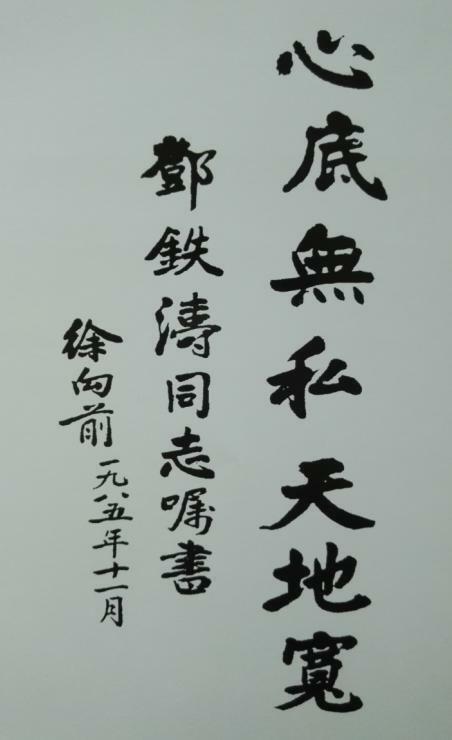 心底無私天地寬
鄧鉄濤同志嘱書
徐向前 一九八五年十一月